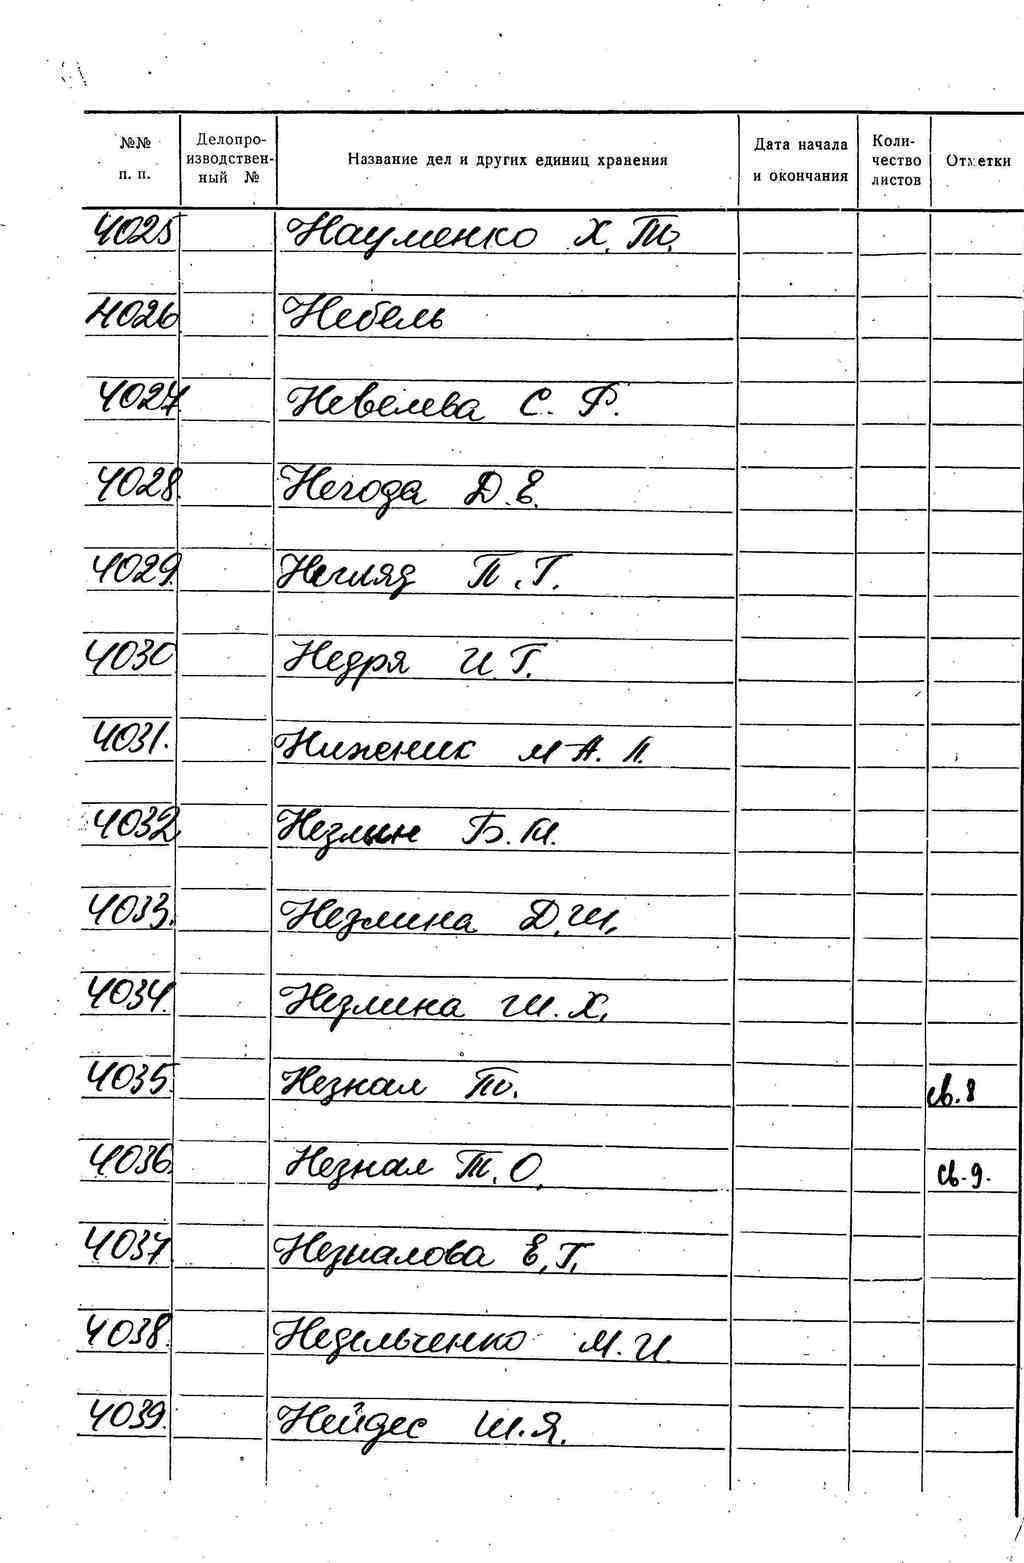 №№ п. п. Делопроизводствен-ный № Название дел и других единиц хранения Дата начала и окончания Коли-чество листов Отметки
4025 Науменко Х. Т.
4026 Небель
4027 Невелева С. Р.
4028. Негода Д. Е.
4029. Негляд П. Г.
4030 Недря И. Г.
4031. Ниженик М А. П.
4032 Незлын Б. М.
4033. Незлина Д. Ш.
4034. Незлина Ш. Х.
4035. Незнал Т. св. 8
4036. Незнал Т. О. св. 9.
4037 Незналова Е. Г.
4038. Недельченко М. И.
4039. Нейдес Ш. Я.